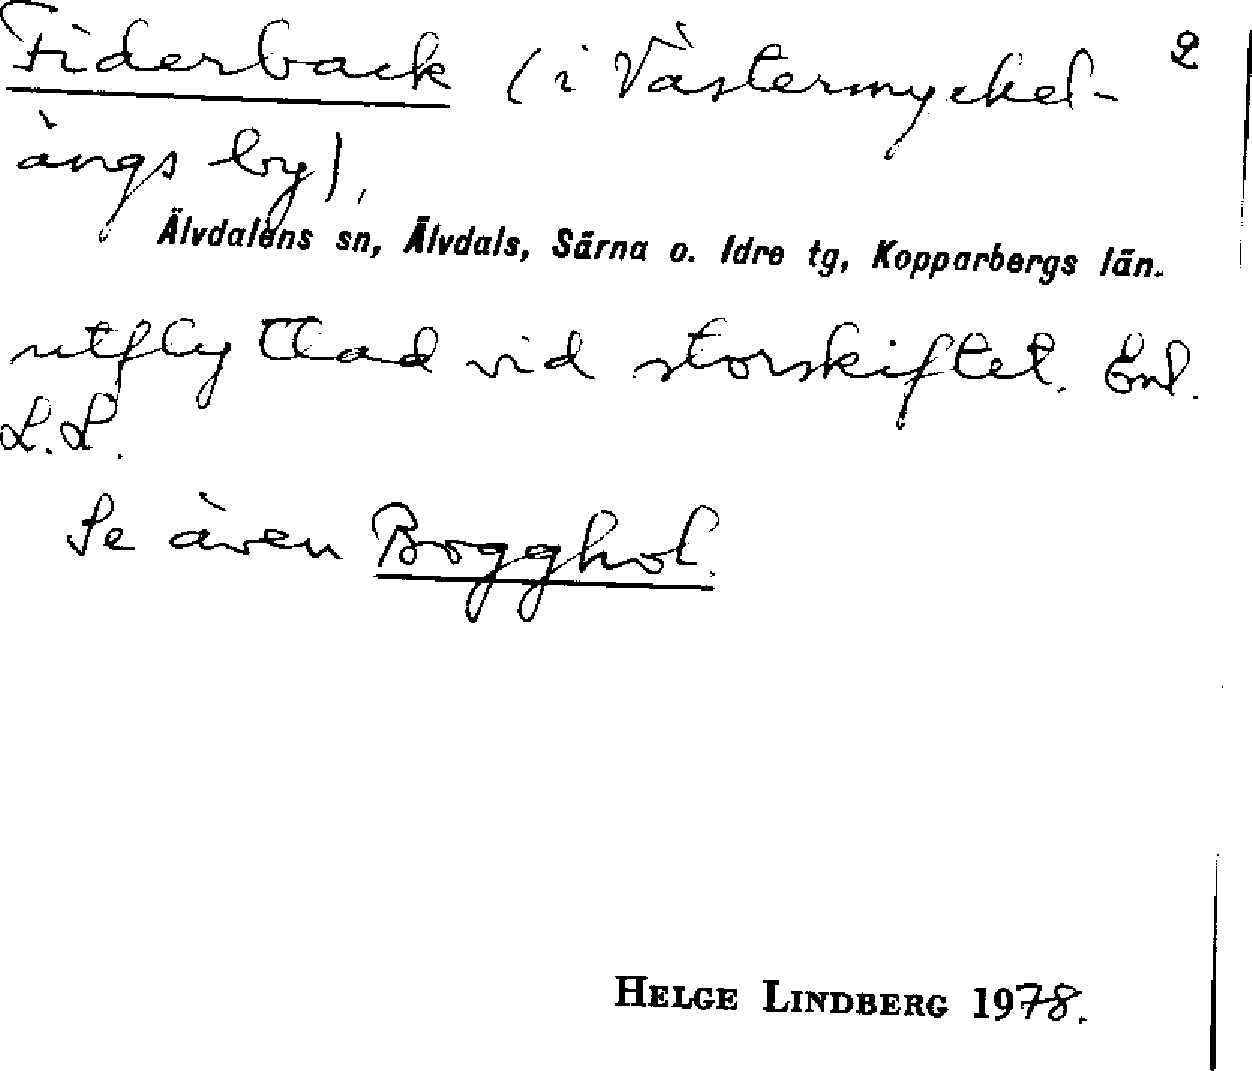 Fiderback (i Västermyckel- 2
ängs by),
Älvdalens sn, Älvdals, Särna o. Idre tg, Kopparbergs län.
utflyttad vid storskiftet. Enl.
L.L.
Se även Bogghol.
HELGE LINDBERG 1978.